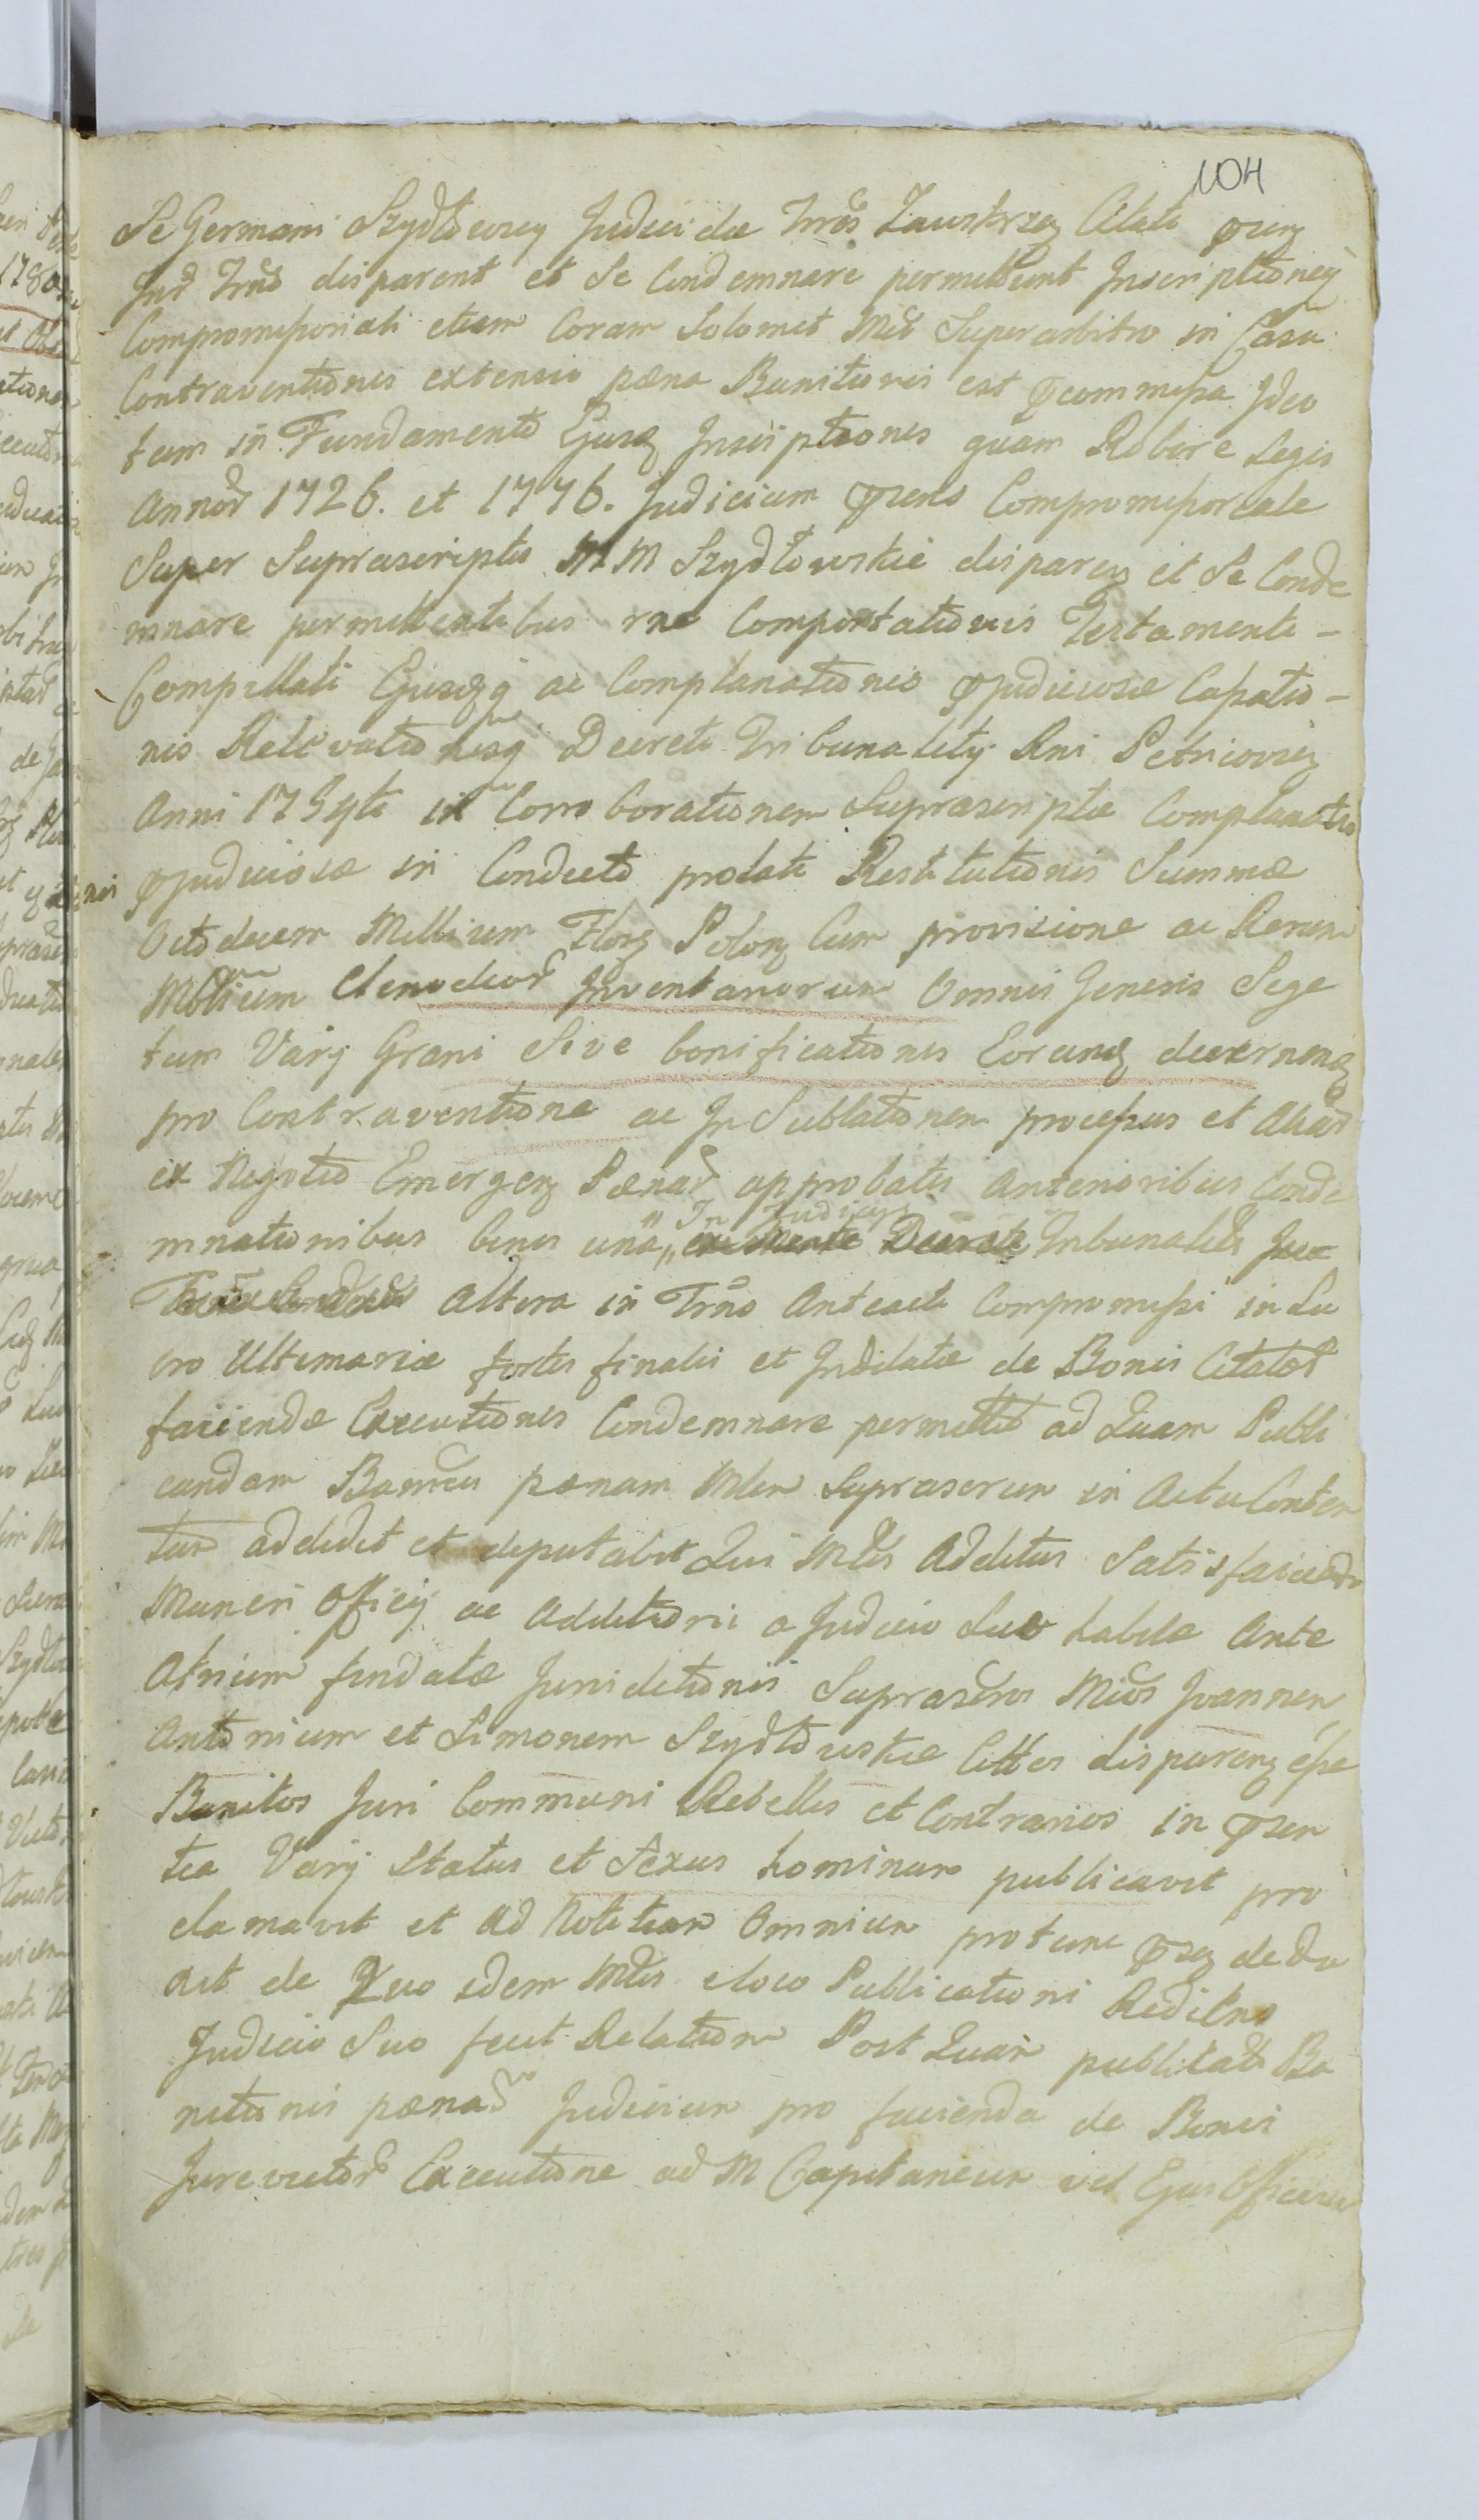 104
Se Germani Szydłowscy Judici de Trās Zawskrzeń Citati
Jud Trās disparent et Se Condemnare permittunt Inscriptioneq
Compromissoriali etiam Coram Solomet Mco Superarbitro in Casu
Contraventionis extensio pæna Banitionis est commissa Ideo
tam in Fundamento Ejusq Inscriptiones quam Robore Legis
Annor 1726. et 1776. Judicium Præns Compromissoriale
Super Suprascriptis MM Szydłowskie disparen et Se Conde
mnare permittentibus rne Comportationis Testamenti –
Compellati Ejusqq ac Complanationis Judiciosæ Cassatio –
nis Relevationisq Decreti Tribunality Rni Petricovien
Anni 1759ti in Corroborationem Suprascriptæ Complanatio
judiciosæ in Condicto prolati Restitutionis Summæ
Octodecem Millium Flor Polon Cum provisione ac Rerum
Mblium Clenodior Inventariorum Omnis Generis Sege
tum Varij Grani Sive bonificationis Eorund decernen
pro Contraventione ac In Sublationem processus et Aliar
ex Negotio Emergen Pænar approbatis Anterioribus Conde
mnationibus binis una „ In Judicijs Tribunality
Altera in Trño Anteacti Compromissi in Lu
cro Ultimariæ fortis finalis et Indilatæ de Bonis Citator
faciendæ Executionis Condemnare permittit ad Quam Publi
candam pænam Mlem Suprascrum in Actu Conten
tum addidit et deputabit Qui Mtlis Additus Satisfaciendo
Muneri Officij ac Additioni a Judicio Suo habitæ Ante
Atrium fundatæ Jurisdictionis Suprascros Mcos Joannem
Antonium et Simonem Szydłowskie Cittos disparen esse
Banitos Juri Communi Rebelles et Contrarios in Præsen
tia Varij Status et Sexus hominum publicavit pro
clamavit et ad Notitiam Omnium protunc deda
xit de Quo idem Mtlis eloco Publicationi Rediens
Judicio Suo fecit Relation Post Quam publicat Ba
nitionis pænam Judicium pro facienda de Bonis
Jurevictor Executione ad M Capitaneum vel Ejus Officium